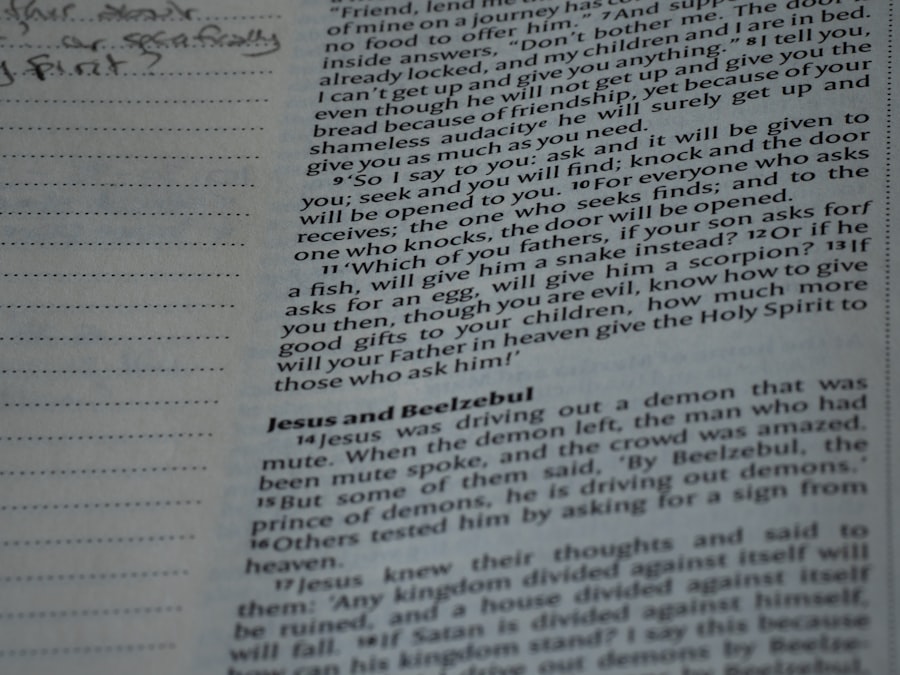 or specifically
Spirit?
"Friend, lend me
of mine on a journey has
no food to offer him." 7 And
inside answers, "Don't bother me. The door
already locked, and my children and I are in bed.
I can't get up and give you anything." 8 I tell you,
even though he will not get up and give you the
bread because of friendship, yet because of your
shameless audacitye he will surely get up and
give you as much as you need.
9 'So I say to you: ask and it will be given to
you; seek and you will find; knock and the door
will be opened to you. 10 For everyone who asks
receives; the one who seeks finds; and to the
one who knocks, the door will be opened.
11 'Which of you fathers, if your son asks forf
a fish, will give him a snake instead? 12 Or if he
asks for an egg, will give him a scorpion? 13 If
you then, though you are evil, know how to give
good gifts to your children, how much more
will your Father in heaven give the Holy Spirit to
those who ask him!'
Jesus and Beelzebul
14 Jesus was driving out a demon that was
mute. When the demon left, the man who had
been mute spoke, and the crowd was amazed.
15 But some of them said, 'By Beelzebul, the
prince of demons, he is driving out demons.'
16 Others tested him by asking for a sign from
heaven.
17 Jesus knew their thoughts and said to
them: 'Any kingdom divided against itself will
be ruined, and a house divided against itself
will fall. 18 If Satan is divided against himself,
how can his kingdom stand? I say this because
drive out demons by Beelze-
by Beelzebul,